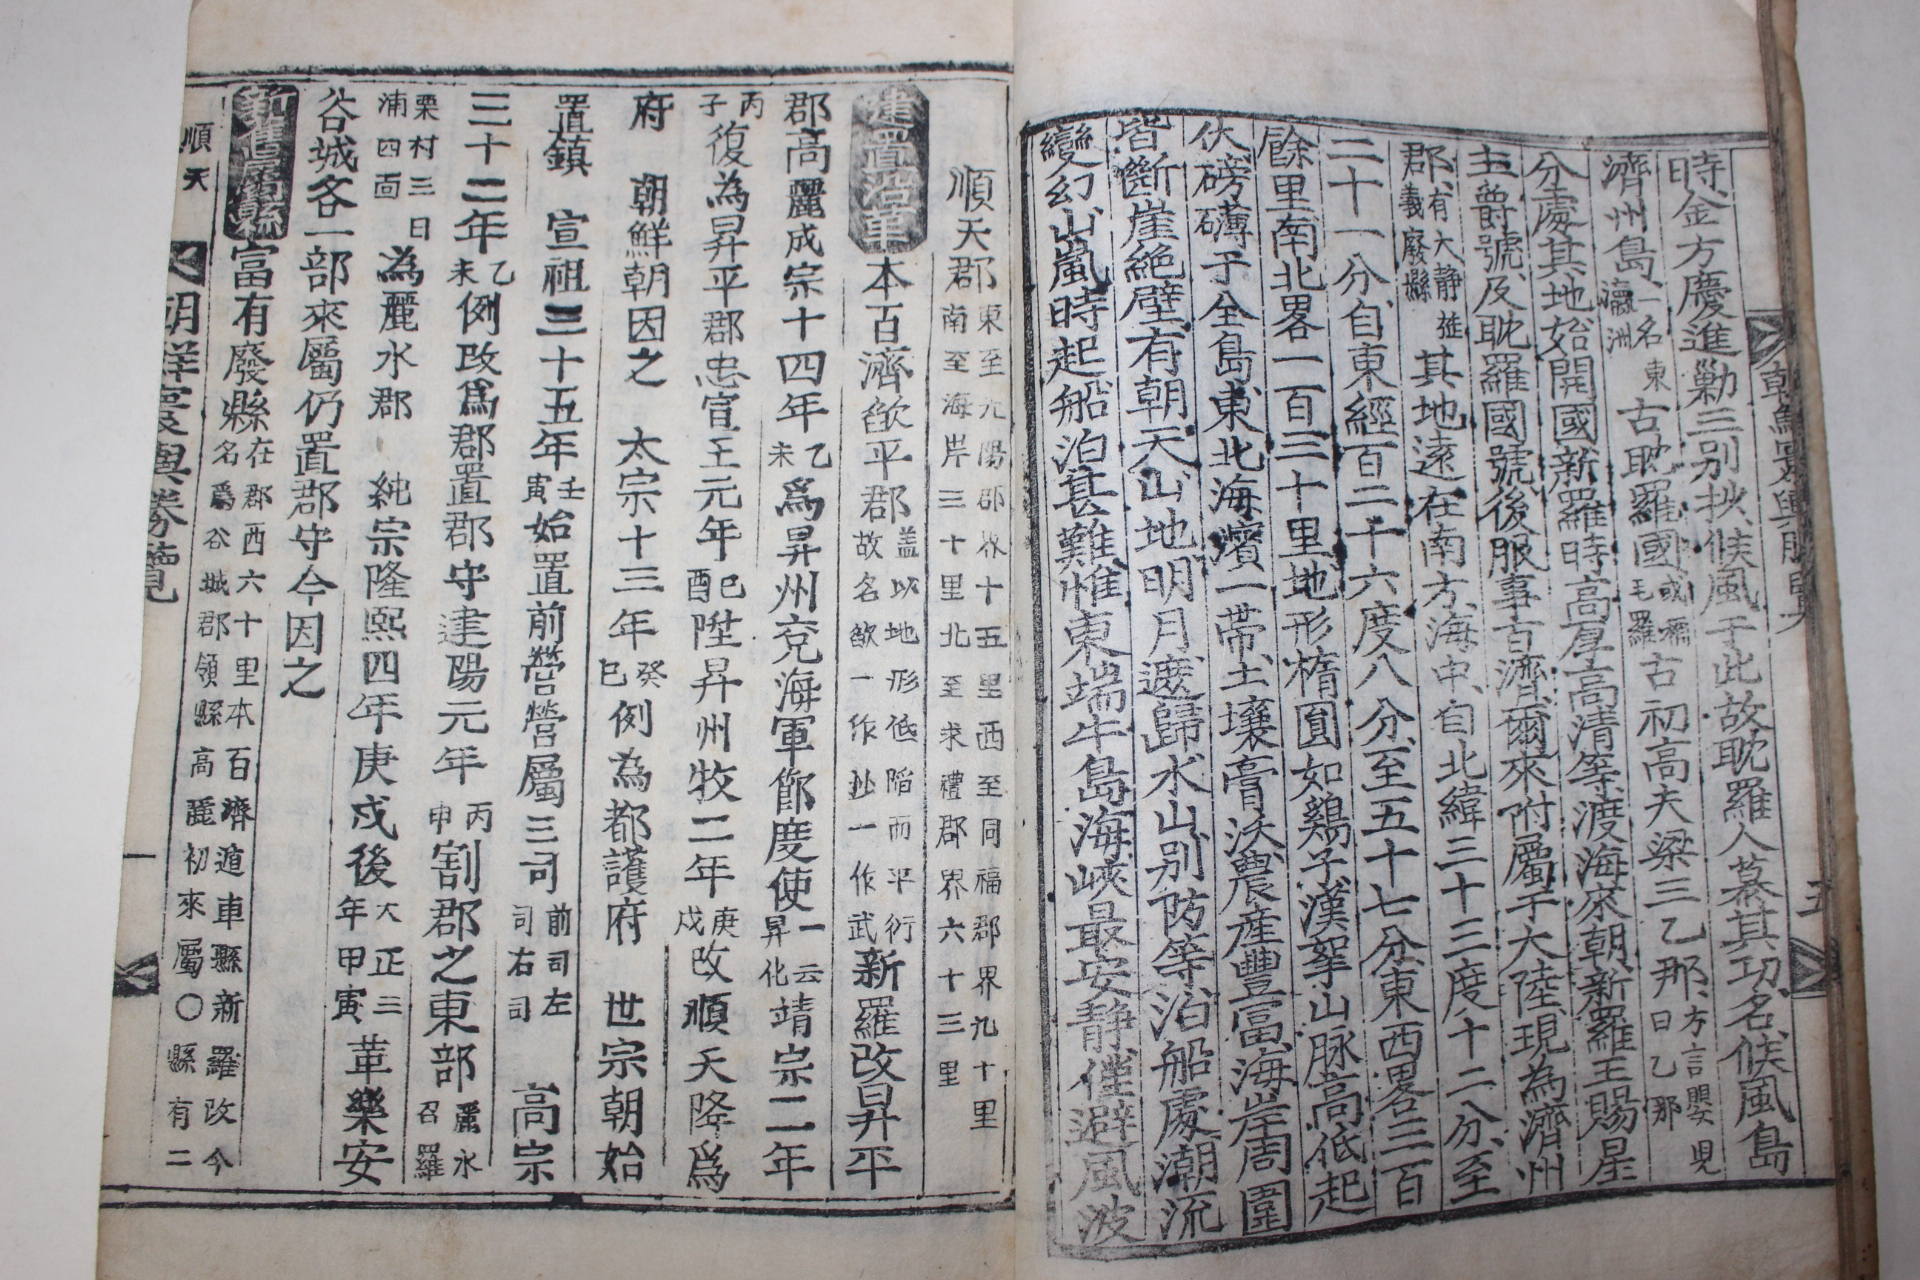 朝鮮寰輿勝覽
五
時金方慶進勦三別抄候風于此故耽羅人慕其功名候風島
濟州島一名東瀛洲古耽羅國或稱毛羅古初高夫梁三乙那方言嬰兒曰乙那
分處其地始開國新羅時高厚高清等渡海來朝新羅王賜星
主爵號及耽羅國號後服事百濟爾來附屬于大陸現為濟州
郡有大静㫌義廢縣其地遠在南方海中自北緯三十三度十二分至
二十一分自東經百二十六度八分至五十七分東西畧三百
餘里南北畧一百三十里地形楕圓如鷄子漢拏山脉高低起
伏磅礴于全島東北海濱一帶土壤膏沃農産豐富海岸周圍
皆斷崖絶壁有朝天山地明月遮歸水山別防等泊船處潮流
變幻山嵐時起船泊甚難惟東端牛島海峽最安静僅避風波
順天郡東至光陽郡界十五里西至同福郡界九十里南至海岸三十里北至求禮郡界六十三里
建置沿革本百濟欿平郡盖以地形低陷而平衍故名欿一作抄一作武新羅改昇平
郡高麗成宗十四年乙未爲昇州兗海軍節度使一云昇化靖宗二年
丙子復為昇平郡忠宣王元年己酉陞昇州牧二年庚戌改順天降爲
府朝鮮朝因之太宗十三年癸巳例為都護府世宗朝始
置鎮宣祖三十五年壬寅始置前營營屬三司前司左司右司高宗
三十二年乙未例改爲郡置郡守建陽元年丙申割郡之東部麗水召羅
栗村三日浦四面為麗水郡純宗隆熙四年庚戌後大正三年甲寅革樂安
谷城各一部來屬仍置郡守今因之
新舊屬縣富有廢縣在郡西六十里本百濟遁車縣新羅改今名爲谷城郡領縣高麗初來屬○縣有二
順天
朝鮮寰輿勝覽
一